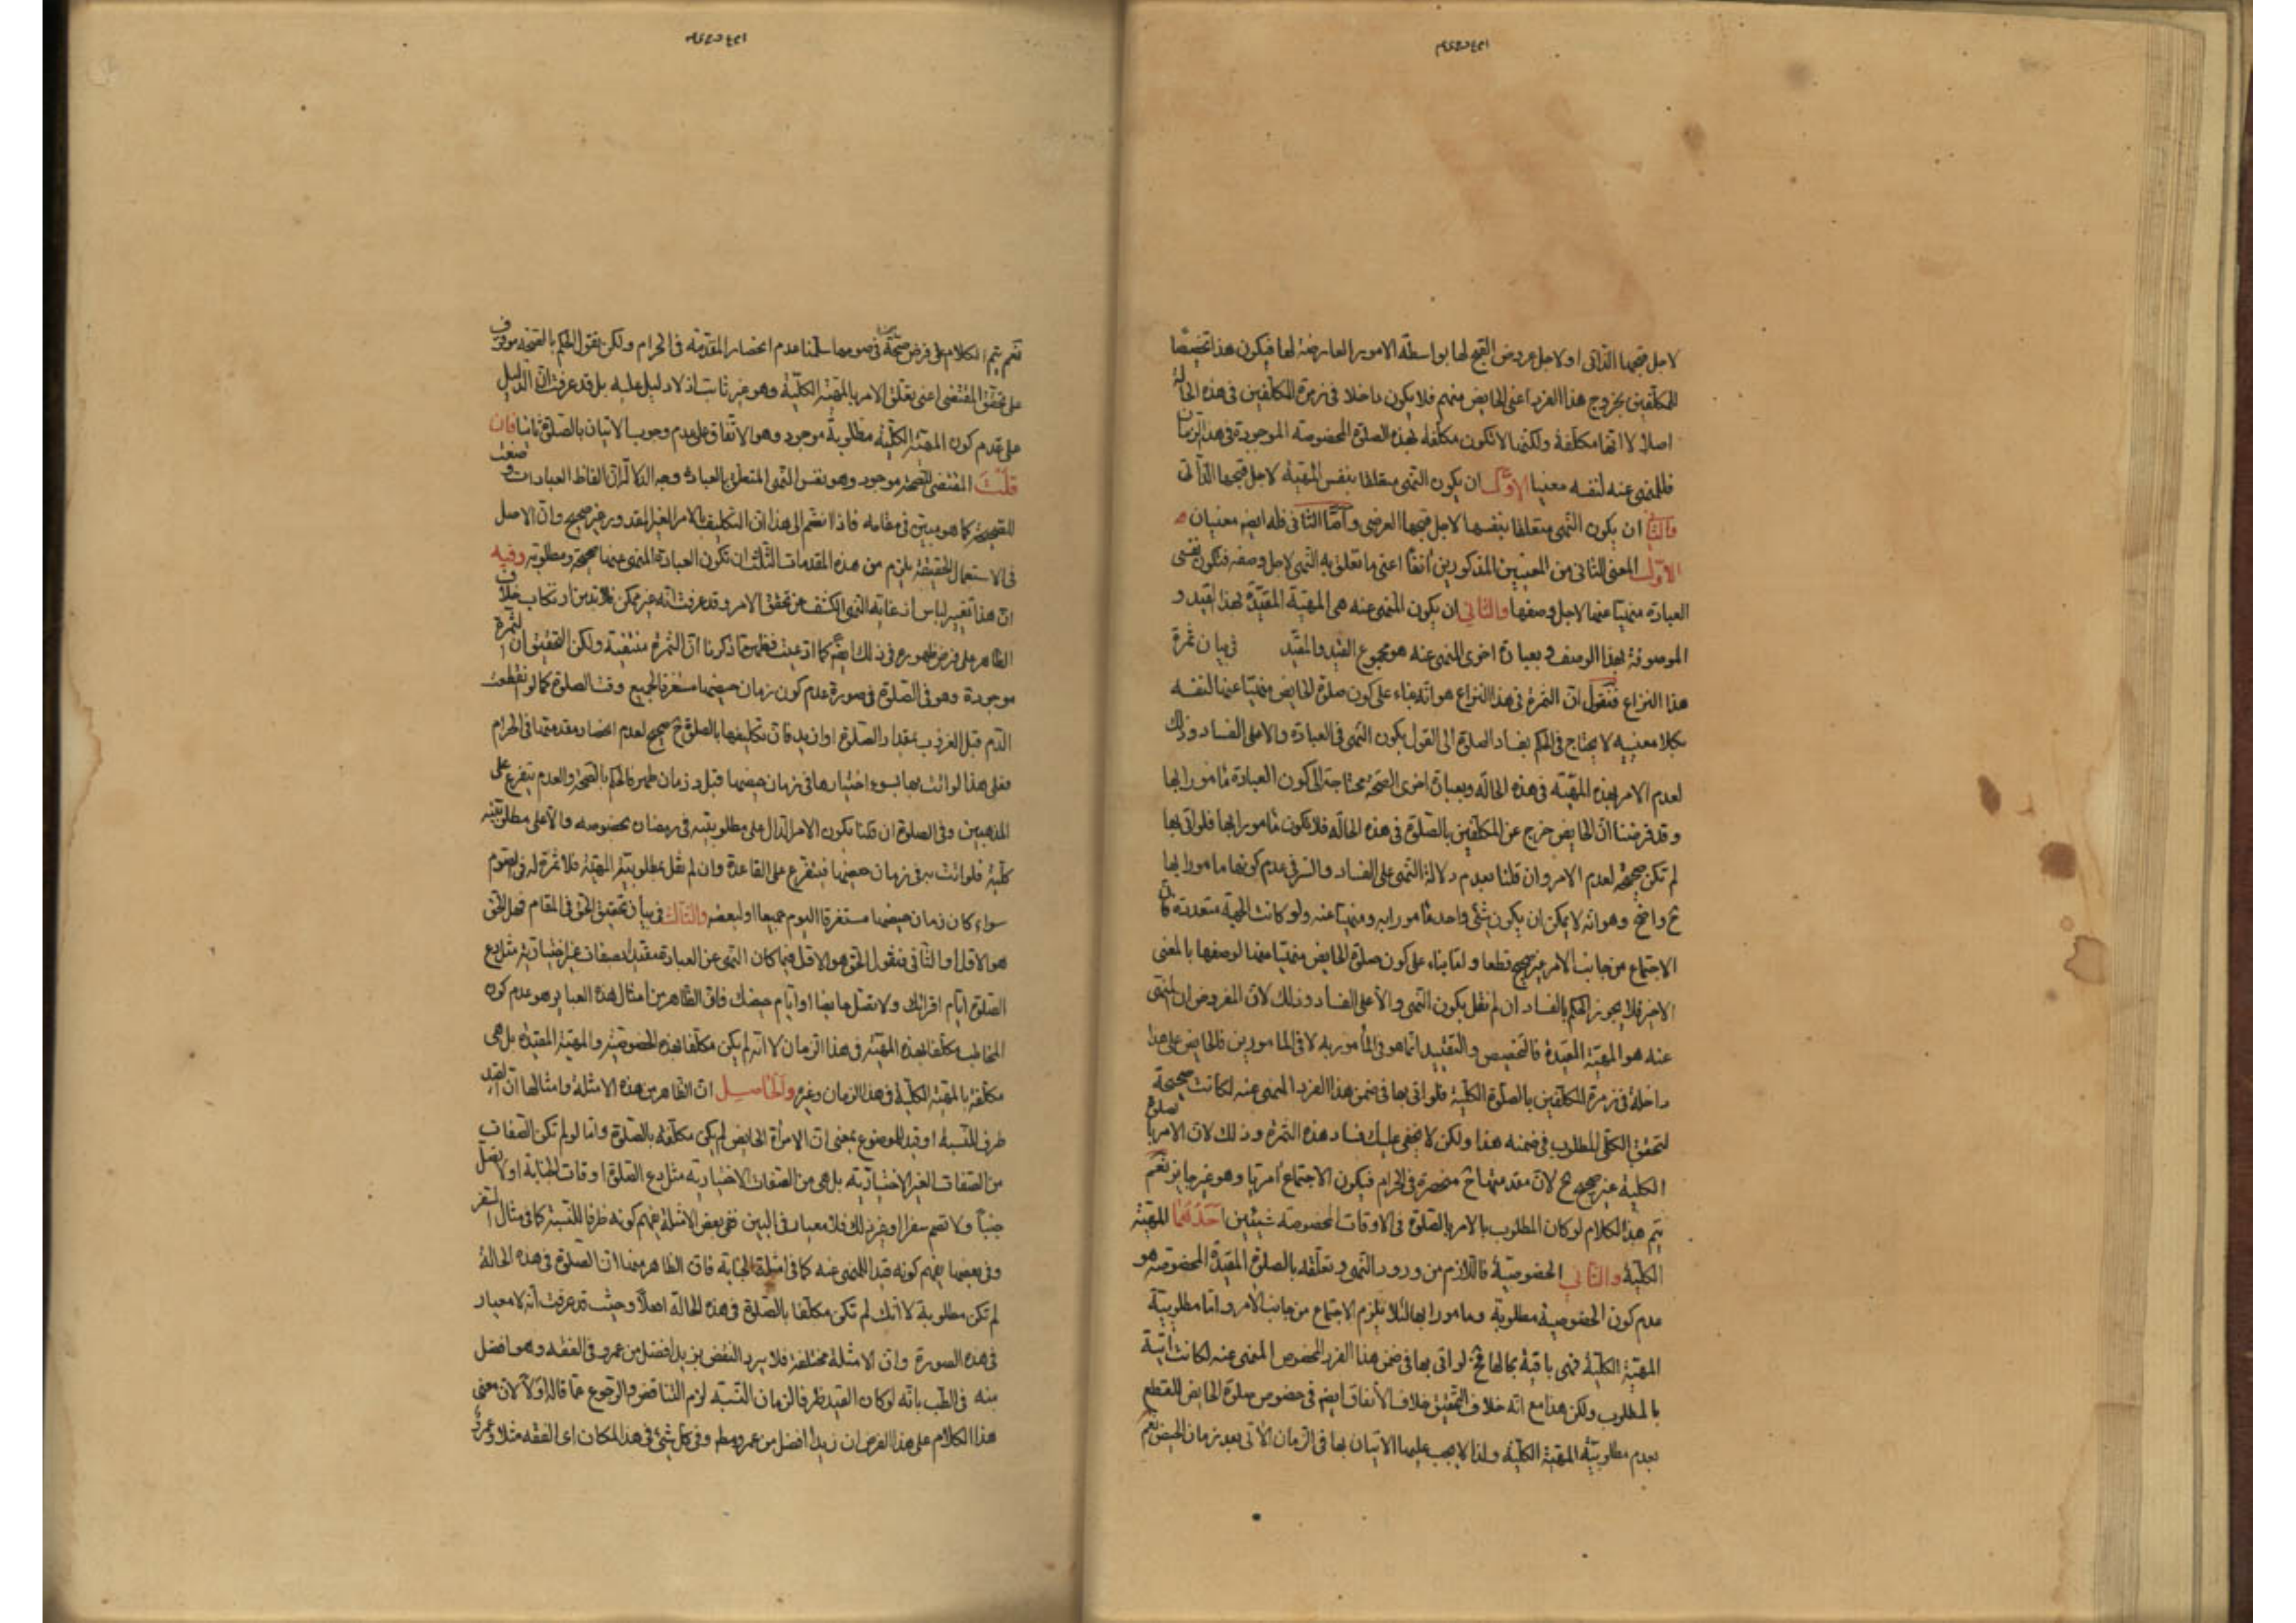 لاجل قبحها الذاتى او لاجل عروض القبح لها بواسطة الامور العارضة لها فيكون هذا تخصيصا
للمكلّفين بخروج هذا الفرد اعنى الحايض منهم فلا يكون داخلا فى زمرة المكلّفين فى هذه الحالة
اصلا لا انها مكلّفة ولكنها لا تكون مكلّفة بهذه الصلوة المخصوصة الموجودة فى هذا الزمان
فللمنهى عنه لنفسه معنيا الاوّل ان يكون النهى متعلقا بنفس المهيّة لاجل قبحها الذّاتى
والثانى ان يكون النهى متعلقا بنفسها لاجل قبحها العرضى وامّا الثانى فله ايضا معنيان
الاوّل المعنى الثانى من المعنيين المذكورين آنفا اعنى ما تعلق به النهى لاجل وصفه فتكون نفس
العبادة منهيّا عنها لاجل وصفها والثانى ان يكون المنهى عنه هى المهيّة المقيّدة بهذا القيد و
الموصوفة بهذا الوصف وبعبارة اخرى المنهى عنه هو مجموع القيد والمقيّد فى بيان ثمرة
هذا النزاع فنقول انّ الثمرة فى هذا النزاع هو انه بناء على كون صلوة الحايض منهيّا عنها لنفسه
بكلا معنييه لا يحتاج فى الحكم بفساد الصلوة الى القول بكون النهى فى العبادة دالا على الفساد وذلك
لعدم الامر بهذه المهيّة فى هذه الحالة وبعبارة اخرى الصحّة محتاجة الى كون العبادة مأمورا بها
وقد فرضنا انّ الحايض خرج عن المكلّفين بالصّلوة فى هذه الحالة فلا يكون مأمورا بها فلو اتى بها
لم تكن صحيحة لعدم الامر وان قلنا بعدم دلالة النهى على الفساد والسرّ فى عدم كونها مامورا بها
ح واضح وهو انه لا يمكن ان يكون شئ واحد مأمورا به ومنهيّا عنه ولو كانت الجهة متعددة فانّ
الاجتماع من جانب الامر غير صحيح قطعا واما بناء على كون صلوة الحايض منهيّا عنها لوصفها بالمعنى
الاخير فلا يجوز الحكم بالفساد ان لم نقل بكون النهى دالا على الفساد وذلك لانّ المفروض ان المنهى
عنه هو المهيّة المقيّدة فالتخصيص والتقييد انّما هو فى المأمور به لا فى المامورين فالحايض على هذا
داخلة فى زمرة المكلّفين بالصلوة الكليّة فلو اتى بها فى ضمن هذا الفرد المنهى عنه لكانت صحيحة
لتحقق الكلّى المطلوب فى ضمنه هذا ولكن لا يخفى عليك فساد هذه الثمرة وذلك لانّ الامر بالصلوة
الكلية غير صحيح ح لانّ مقدمتها ح منحصرة فى الحرام فيكون الاجتماع آمريا وهو غير جايز نعم
يتم هذا الكلام لو كان المطلوب بالامر بالصلوة فى الاوقات المخصوصة شيئين احدهما المهيّة
الكليّة والثانى الخصوصيّة فاللازم من ورود النهى وتعلّقه بالصلوة المقيّدة المخصوصة هو
عدم كون الخصوصية مطلوبة ومامورا بها لئلا يلزم الاجتماع من جانب الامر وامّا مطلوبيّة
المهيّة الكليّة فهى باقية بحالها فح لو اتى بها فى ضمن هذا الفرد المخصوص المنهى عنه لكانت آتية
بالمطلوب ولكن هذا مع انه خلاف التحقيق خلاف الاتفاق ايضا فى خصوص صلوة الحايض للقطع
بعدم مطلوبيّة المهيّة الكليّة ولذا لا يجب عليها الاتيان بها فى الزمان الآتى بعد زمان الحيض نعم
نعم يتم الكلام على فرض صحّة فى صومها سلّمنا عدم انحصار المقدّمة فى الحرام ولكن نقول الحكم بالصحّة موقوف
على تحقق المقتضى اعنى تعلّق الامر بالمهيّة الكليّة وهو غير ثابت اذ لا دليل عليه بل قد عرفت انّ الدليل
على عدم كون المهيّة الكليّة مطلوبة موجود وهو الاتّفاق على عدم وجوب الاتيان بالصلوة ثانيا فان
قلت المقتضى للصحّة موجود وهو نفس النهى المتعلّق بالعبادة وجه الدلالة انّ الفاظ العبادات وضعت
للصّحيحة كما هو مبيّن فى مقامه فاذا انضم الى هذا انّ التكليف بالامر الغير المقدور غير صحيح وانّ الاصل
فى الاستعمال الحقيقة يلزم من هذه المقدمات الثلث ان تكون العبادة المنهى عنها صحيحة ومطلوبة وفيه
انّ هذا تغيير لباس اذ غاية النهى الكشف عن تحقق الامر وقد عرفت انّه غير ممكن فلابد من ارتكاب خلاف
الظاهر على فرض ظهوره فى ذلك ايضا كما ادعيت فظهر ممّا ذكرنا انّ الثمرة منتفية ولكن التحقيق ان الثمرة
موجودة وهو فى الصّلوة فى صورة عدم كون زمان حيضها مستغرقا لجميع وقت الصلوة كما لو انقطعت
الدّم قبل الغروب بمقدار الصّلوة او ازيد فانّ تكليفها بالصلوة ح صحيح لعدم انحصار مقدمتها فى الحرام
فعلى هذا لو اتت بها بسوء اختيارها فى زمان حيضها قبل زمان طهر فالحكم بالصّحة والعدم يتفرع على
المذهبين وفى الصلوة ان قلنا بكون الامر الدال على مطلوبيّته فى رمضان بخصوصه دالا على مطلوبيّته
كليّة فلو اتت به فى زمان حيضها فيتفرّع على القاعدة وان لم نقل بمطلوبيّة المهيّة فلا ثمرة له فى الصوم
سواء كان زمان حيضها مستغرقا اليوم جميعا او لبعضه والثّالث فى بيان تحقيق الحق فى المقام فهل الحق
هو الاوّل او الثّانى فنقول الحق هو الاوّل فيما كان النهى عن العبادة مقيّدا بصفات غير اختيارية مثل دع
الصّلوة ايّام اقرائك ولا تصل حايضا او ايّام حيضك فانّ الظّاهر من امثال هذه العباير هو عدم كون
المخاطب مكلّفا بهذه المهيّة فى هذا الزمان لا انه لم يكن مكلّفا بهذه الخصوصيّة والمهيّة المقيّدة بل هى
مكلّفة بالمهيّة الكليّة فى هذا الزمان وغيره والحاصل انّ الظّاهر من هذه الامثلة وامثالها انّ القيد
ظرف للنسبة او قيد للموضوع بمعنى انّ الامرأة الحايض لم يكن مكلّفة بالصّلوة وامّا لو لم تكن الصّفات
من الصّفات الغير الاختياريّة بل هى من الصّفات الاختيارية مثل دع الصّلوة اوقات الجنابة او لا تصلّ
جنبا ولا تصم سفرا او غير ذلك فلا معيار فى البين ففى بعض الامثلة يفهم كونه ظرفا للنسبة كما فى مثال السفر
وفى بعضها يفهم كونه قيدا للمنهى عنه كما فى امثلة الجنابة فانّ الظاهر منها انّ الصلوة فى هذه الحالة
لم تكن مطلوبة لا انّك لم تكن مكلّفا بالصّلوة فى هذه الحالة اصلا وحيث قد عرفت انّه لا معيار
فى هذه الصورة وانّ الامثلة مختلفة فلا يرد النقض بزيد افضل من عمرو فى الفقه وهو افضل
منه فى الطّب بانّه لو كان القيد ظرفا لزمان النّسبة لزم التناقض والرّجوع عمّا قاله اوّلا لانّ معنى
هذا الكلام على هذا الفرض ان زيدا افضل من عمرو مط وفى كل شئ فى هذا المكان اى الفقه مثلا وعمرو